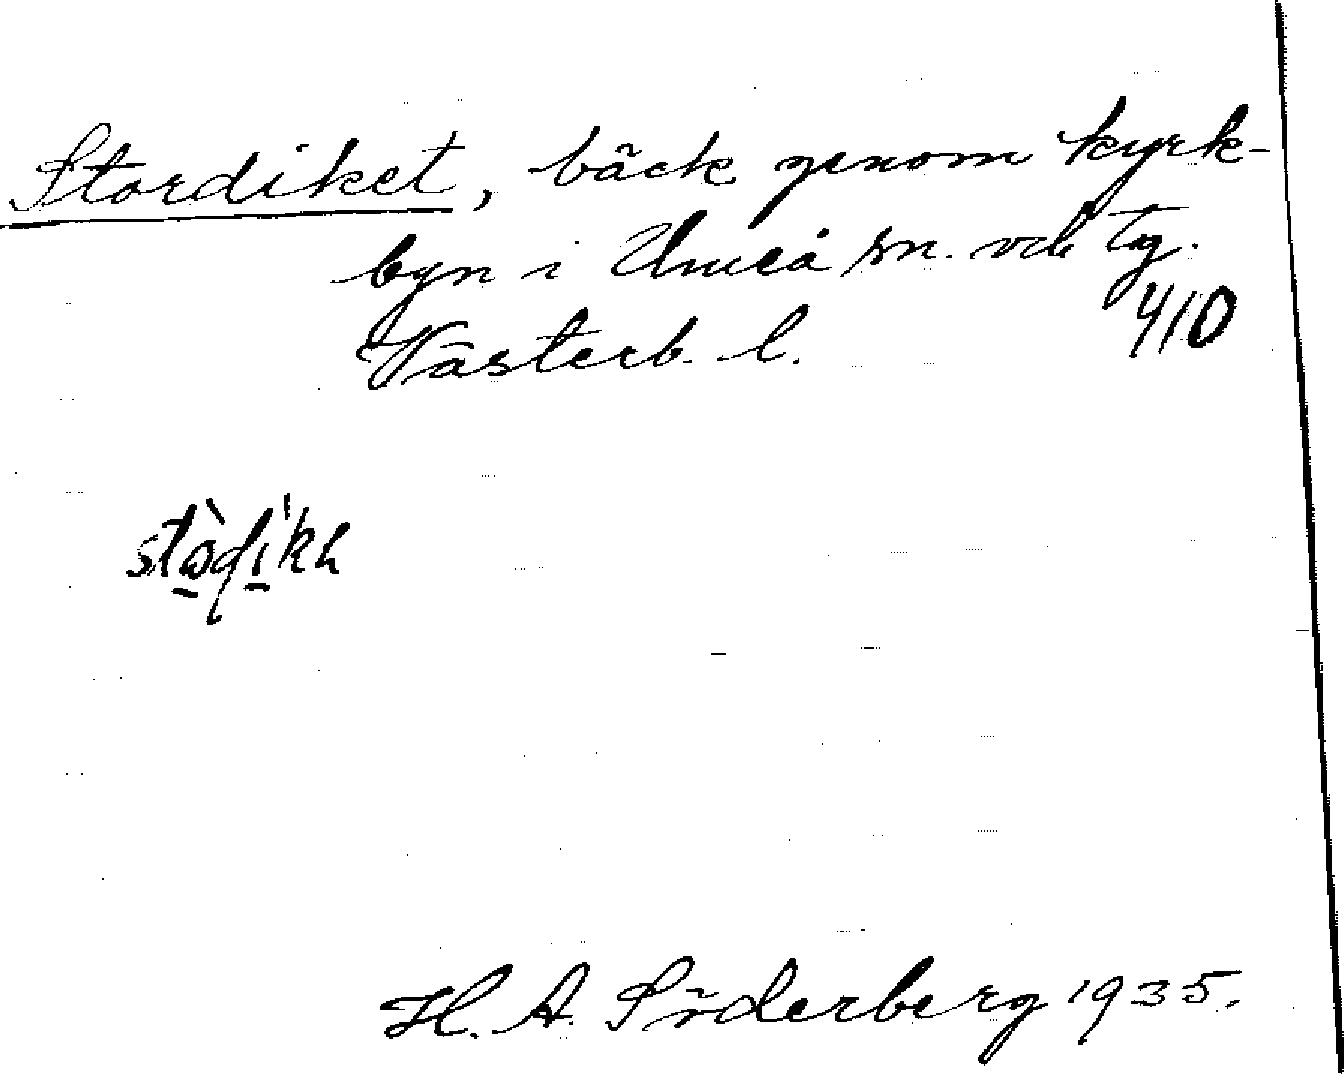 Stordiket, bäck genom kyrk-
byn i Umeå sn. och tg.
Västerb. l. 410
H. A. Söderberg 1935.